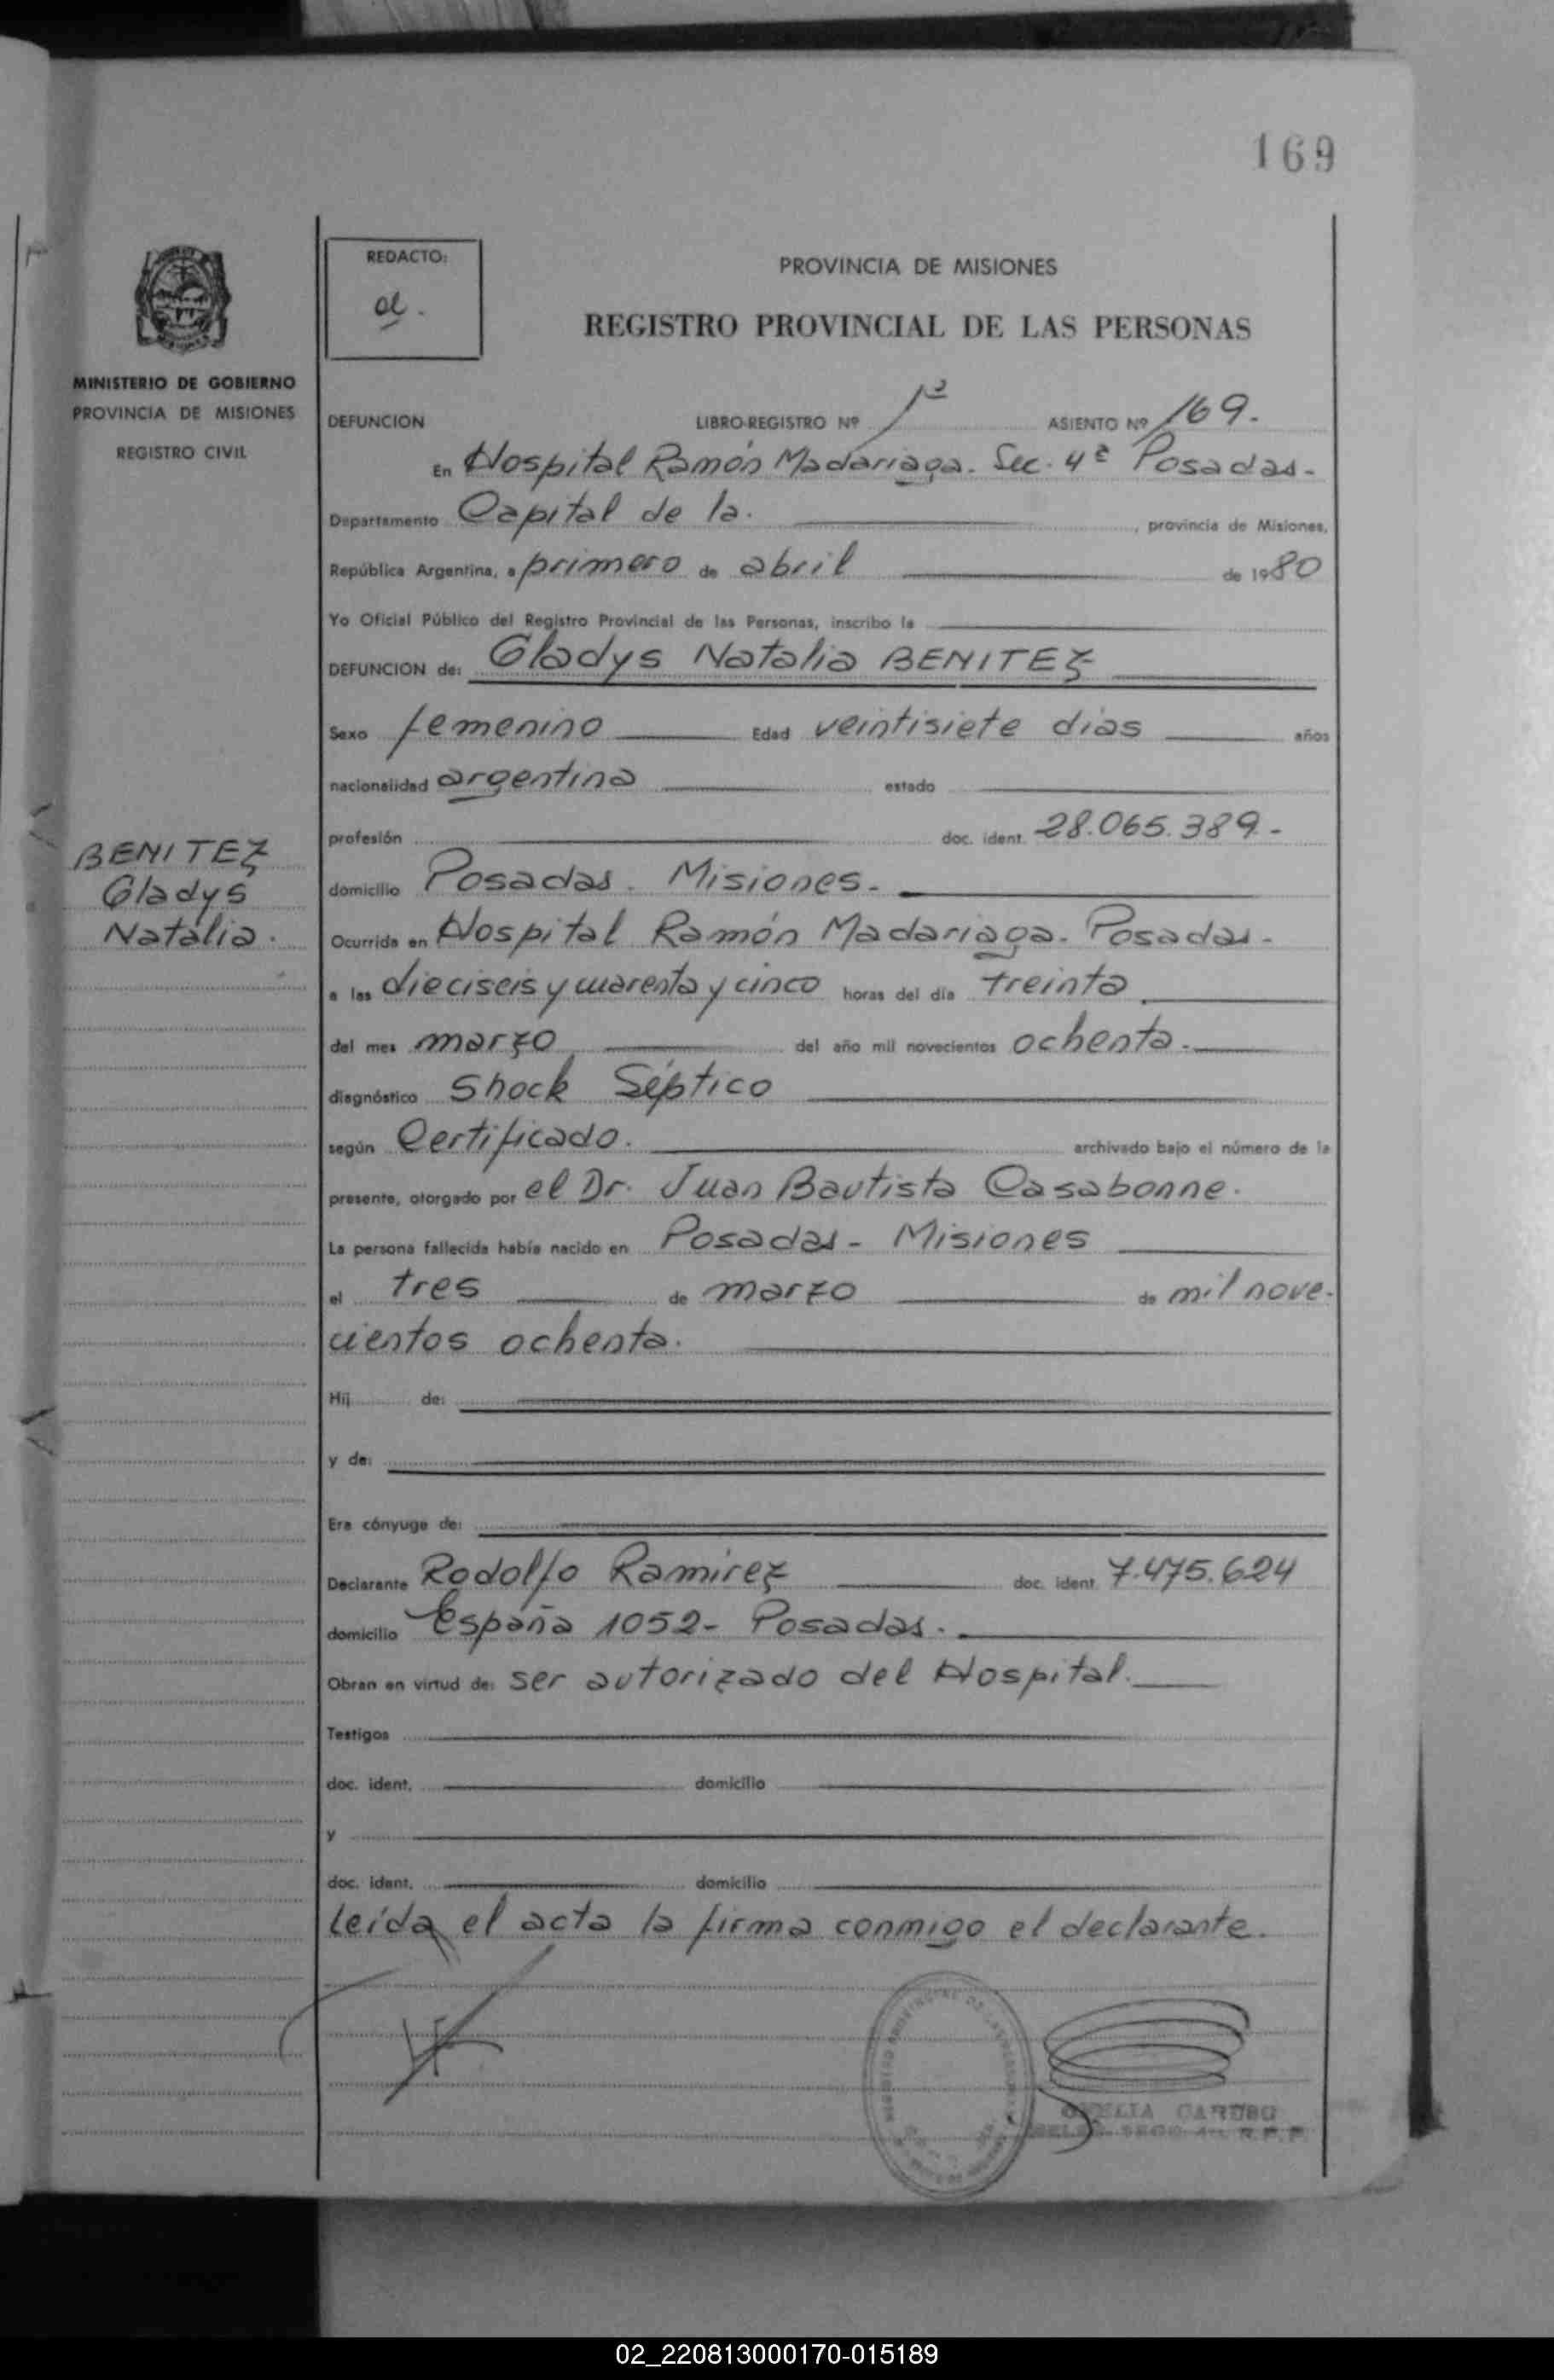 169
REDACTO:
PROVINCIA DE MISIONES
REGISTRO PROVINCIAL DE LAS PERSONAS
MINISTERIO DE GOBIERNO
PROVINCIA DE MISIONES
REGISTRO CIVIL
DEFUNCION LIBRO-REGISTRO Nº 1º ASIENTO Nº 169.
En Hospital Ramón Madariaga. Sec. 4ª Posadas-
Departamento Capital de la. , provincia de Misiones,
República Argentina, a primero de abril de 1980
Yo Oficial Público del Registro Provincial de las Personas, inscribo la
DEFUNCION de: Gladys Natalia BENITEZ
Sexo femenino Edad veintisiete días años
nacionalidad argentina estado
profesión doc. ident. 28.065.389.-
BENITEZ
Gladys
Natalia.
domicilio Posadas. Misiones.-
Ocurrida en Hospital Ramón Madariaga. Posadas.-
a las dieciseis y cuarenta y cinco horas del día treinta
del mes marzo del año mil novecientos ochenta.
diagnóstico Shock Séptico
según Certificado. archivado bajo el número de la
presente, otorgado por el Dr. Juan Bautista Casabonne.
La persona fallecida había nacido en Posadas - Misiones
el tres de marzo de mil nove-
cientos ochenta.
Hij de:
y de:
Era cónyuge de:
Declarante Rodolfo Ramirez doc. ident. 7.475.624
domicilio España 1052- Posadas.
Obran en virtud de: ser autorizado del Hospital.
Testigos
doc. ident. domicilio
y
doc. ident. domicilio
Leída el acta la firma conmigo el declarante.
CARUSO
R.P.P.
02_220813000170-015189